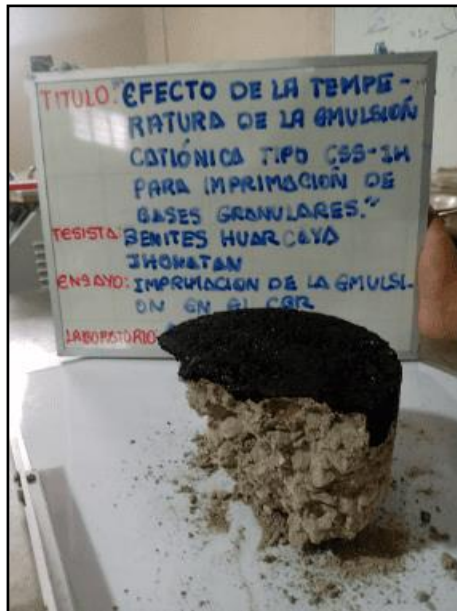 TITULO: "EFECTO DE LA TEMPE-
RATURA DE LA EMULSIÓN
CATIÓNICA TIPO CSS-1H
PARA IMPRIMACIÓN DE
BASES GRANULARES."
TESISTA: BENITES HUARCAYA
JHONATAN
ENSAYO: IMPRIMACION DE LA EMULSI-
ON EN EL CBR
LABORATORIO: